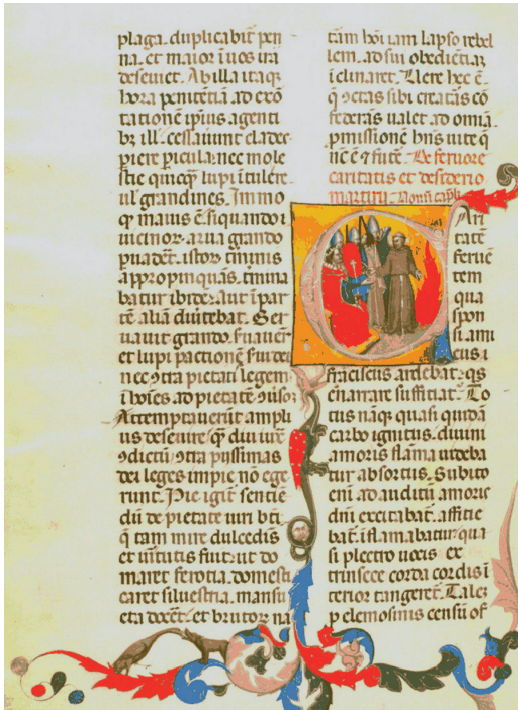 plaga. duplicabit pen
na. et maior ĩ uos ira
deseuiet. Ab illa itaq
hora penitẽtiã ad exõ
tationẽ ip̃ius agenti
bz ill. cessauunt clades
piere picula. nec mole
stie quicq lupi ĩtulere
ul grandines. Immo
q maius ẽ. siquando ĩ
uicinor. arua grando
puadet. istor t̃minis
appropinquãs. t̃mina
batur ibidẽ. aut ĩ par
tẽ aliã diũtebat. Ser
uauit grando. fuauẽt
et lupi pactionẽ fui dei
nec ↄtra pietati legem
ĩ hoĩes ad pietatẽ
Attemptauerũt ampli
us deseuire. q̃ diu iurẽ
ↄdictũ ↄtra pijssimas
dei leges impie nõ ege
runt. Pie igit̃ sentiẽ
dũ de pietate uiri bti.
q̃ tam mire dulcedis
et uirtutis fuit. ut do
maret ferocia. domesti
caret siluestria. mansu
eta docẽt. et brutor na
tãm hõi iam lapso rebel
lem. ad sui obedientiã
ĩclinaret. Uere hec ẽ.
q̃ ↄctas sibi creatãs cõ
federãs ualet ad omĩa
pmissionẽ hñs uite q̃
nc̃ ẽ ⁊ futẽ. De feruore
caritatis et desiderio
martirij. Nonũ capl̃.
Cari
tatẽ
feruẽ
tem
qua
spon
si ami
cus
fraciscus ardebat. qs
enarrare sufficiat. To
tus naq̃. quasi quidã
carbo ignitus. diuini
amoris flãma uideba
tur absortus. Subito
eni ad auditũ amoris
dnĩ excitabat. afficie
bat̃. ĩflamabatur qua
si plectro uocis ex
trinsece corda cordis ĩ
terior tangeret̃. Tales
p elemosinis censũ of